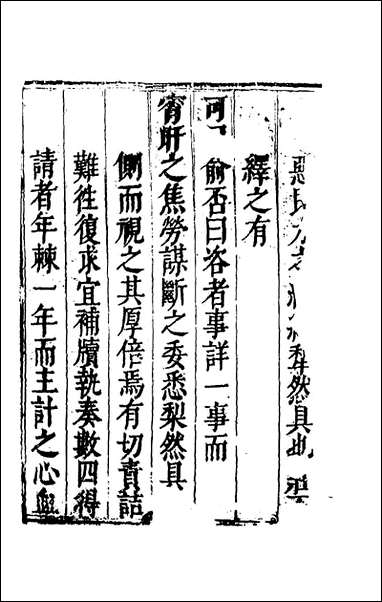 犁然具也
繹之有
俞否曰咨者事詳一事而
宵旰之焦勞謀斷之委悉犁然具
側而視之其厚倍焉有切責詰
難往復求宜補牘執奏數四得
請者年棘一年而主計之心血